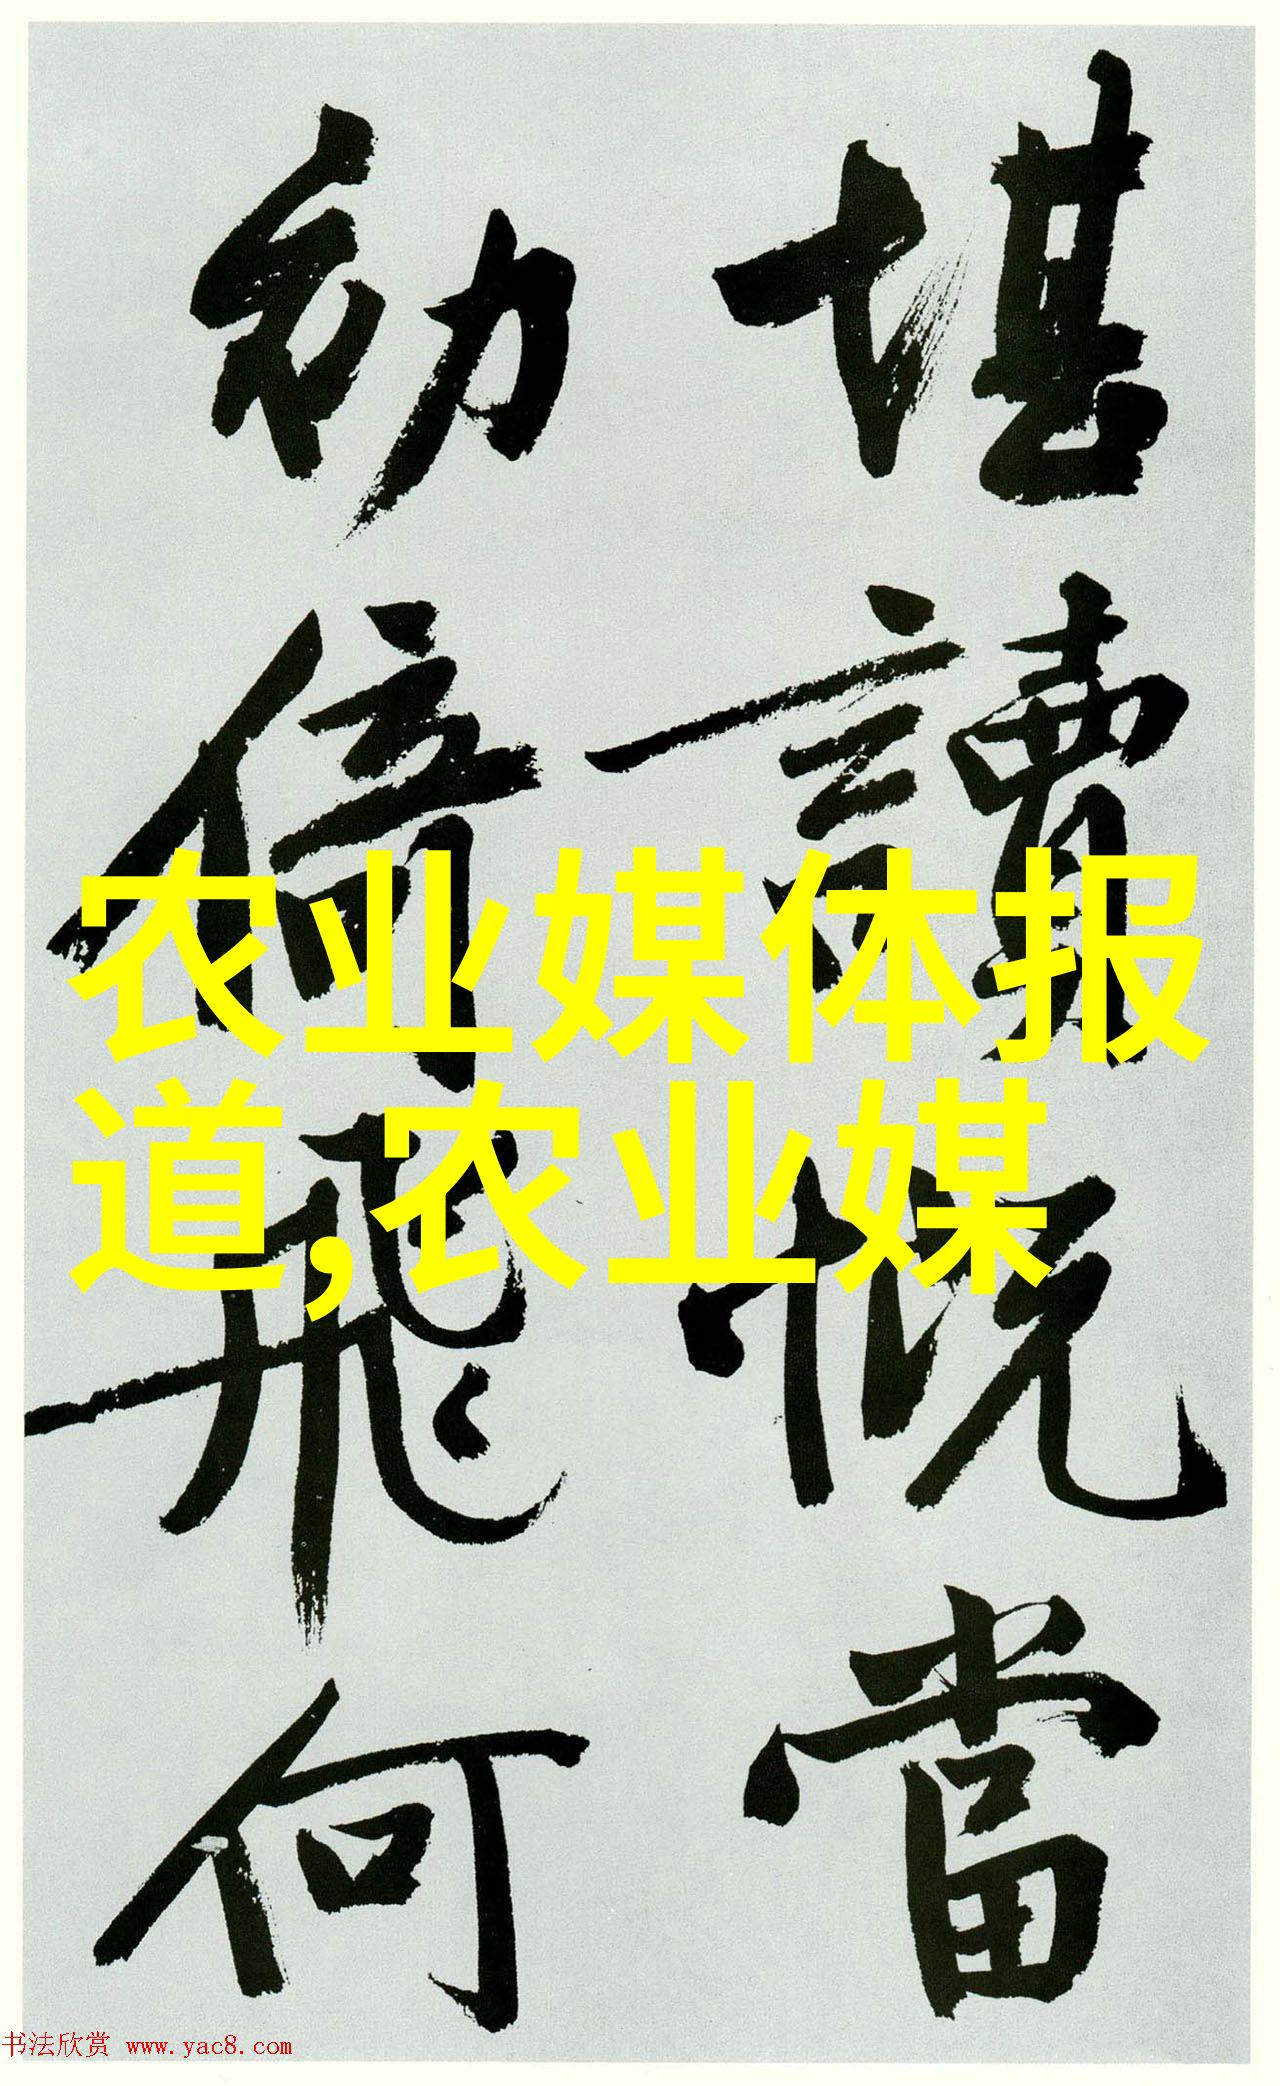 堪讀慨當
幼倚飛何
农业媒体报
道,农业媒
书法欣赏 www.yac8.com